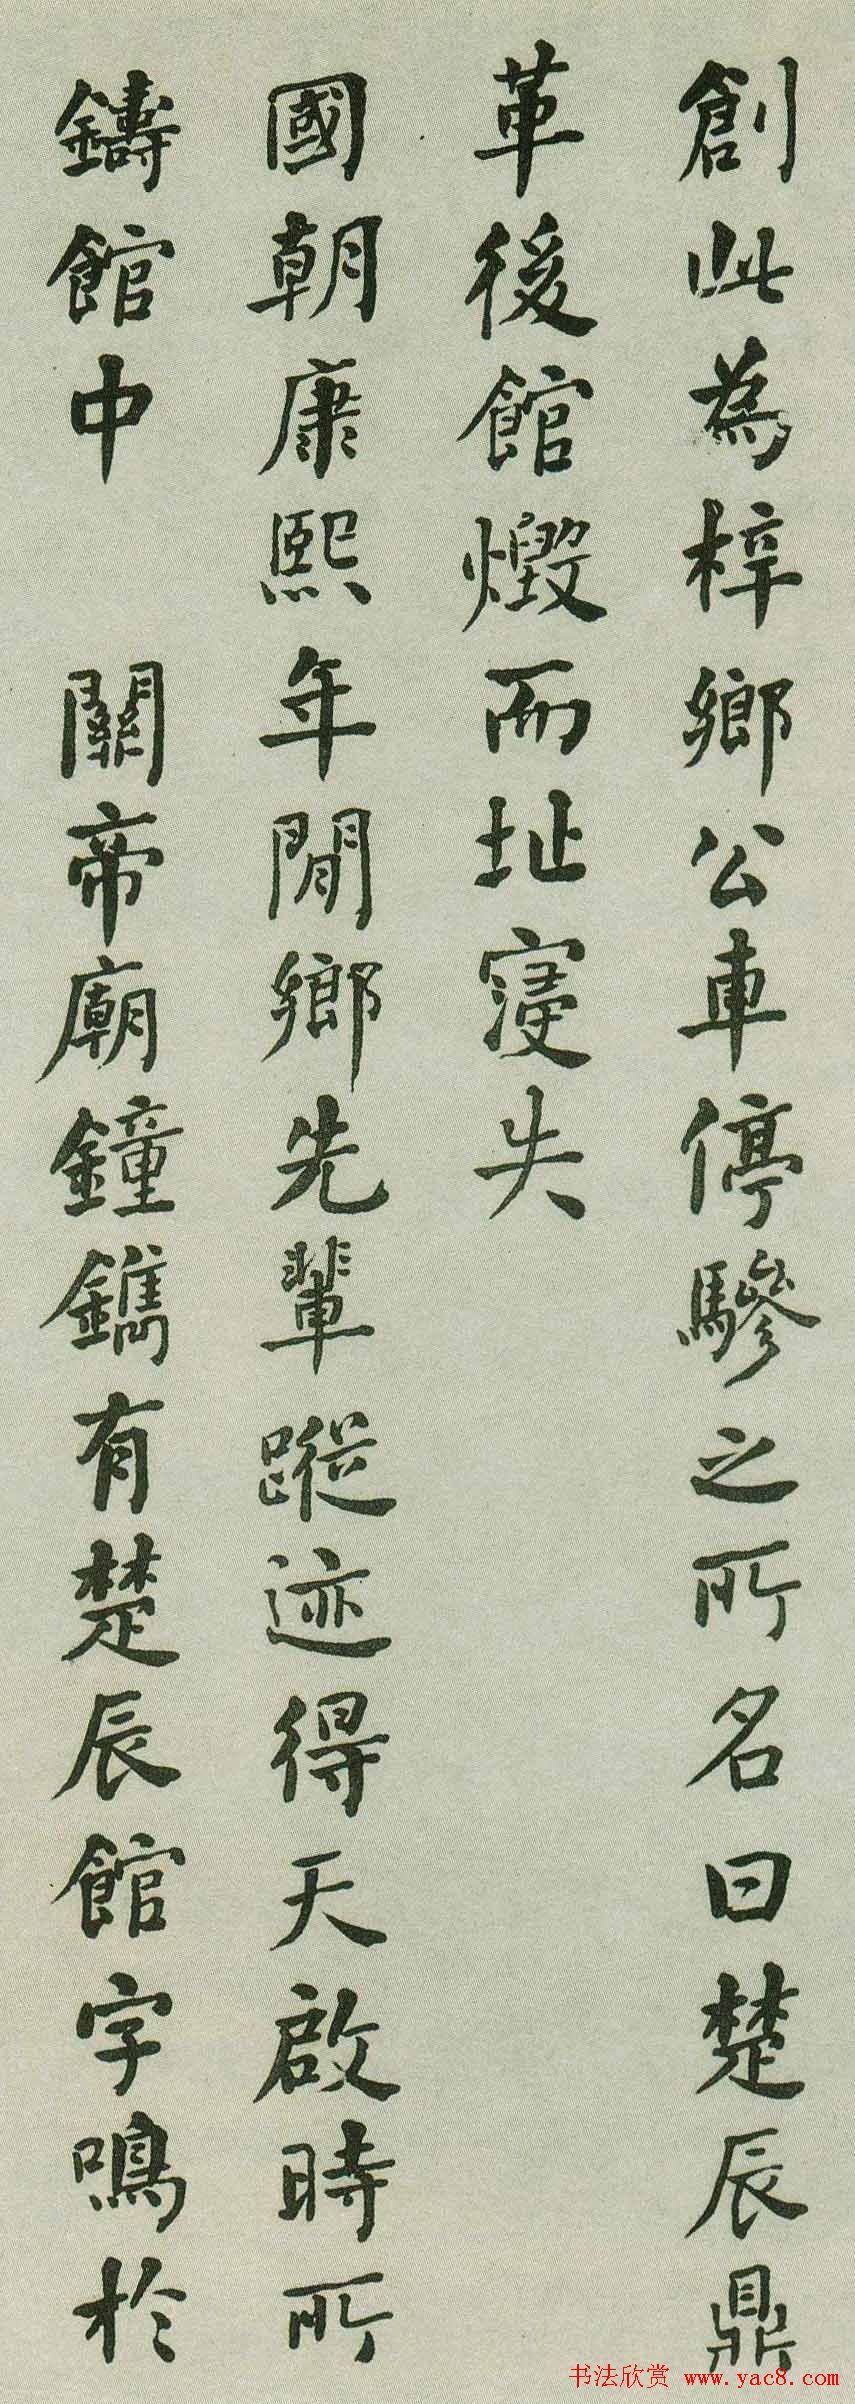 創此為梓鄉公車停驂之所名曰楚辰鼎
革後館燬而址寖失
國朝康熙年間鄉先輩蹤迹得天啟時所
鑄館中 關帝廟鐘鐫有楚辰館字鳴於
书法欣赏 www.yac8.com